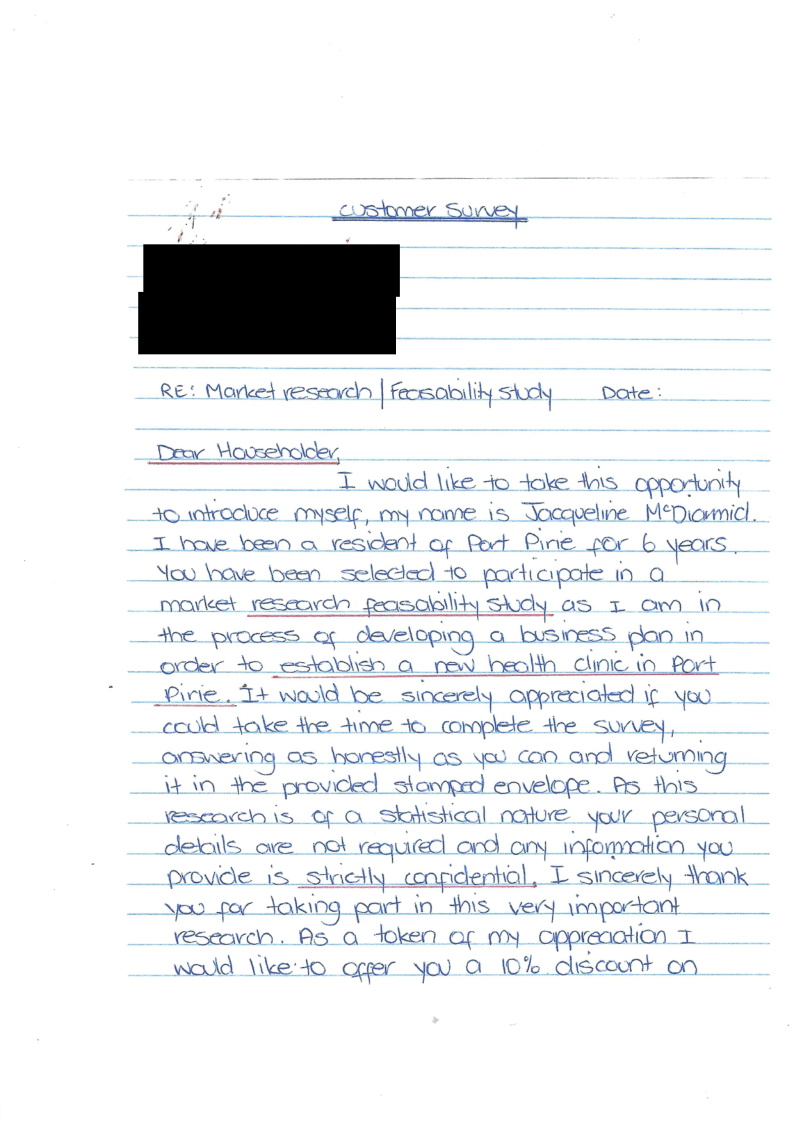 customer survey
RE: Market research | Feasability study Date:
Dear Householder,
I would like to take this opportunity
to introduce myself, my name is Jacqueline McDiarmid.
I have been a resident of Port Pirie for 6 years.
You have been selected to participate in a
market research feasability study as I am in
the process of developing a business plan in
order to establish a new health clinic in Port
Pirie. It would be sincerely appreciated if you
could take the time to complete the survey,
answering as honestly as you can and returning
it in the provided stamped envelope. As this
research is of a statistical nature your personal
details are not required and any information you
provide is strictly confidential. I sincerely thank
you for taking part in this very important
research. As a token of my appreciation I
would like to offer you a 10% discount on